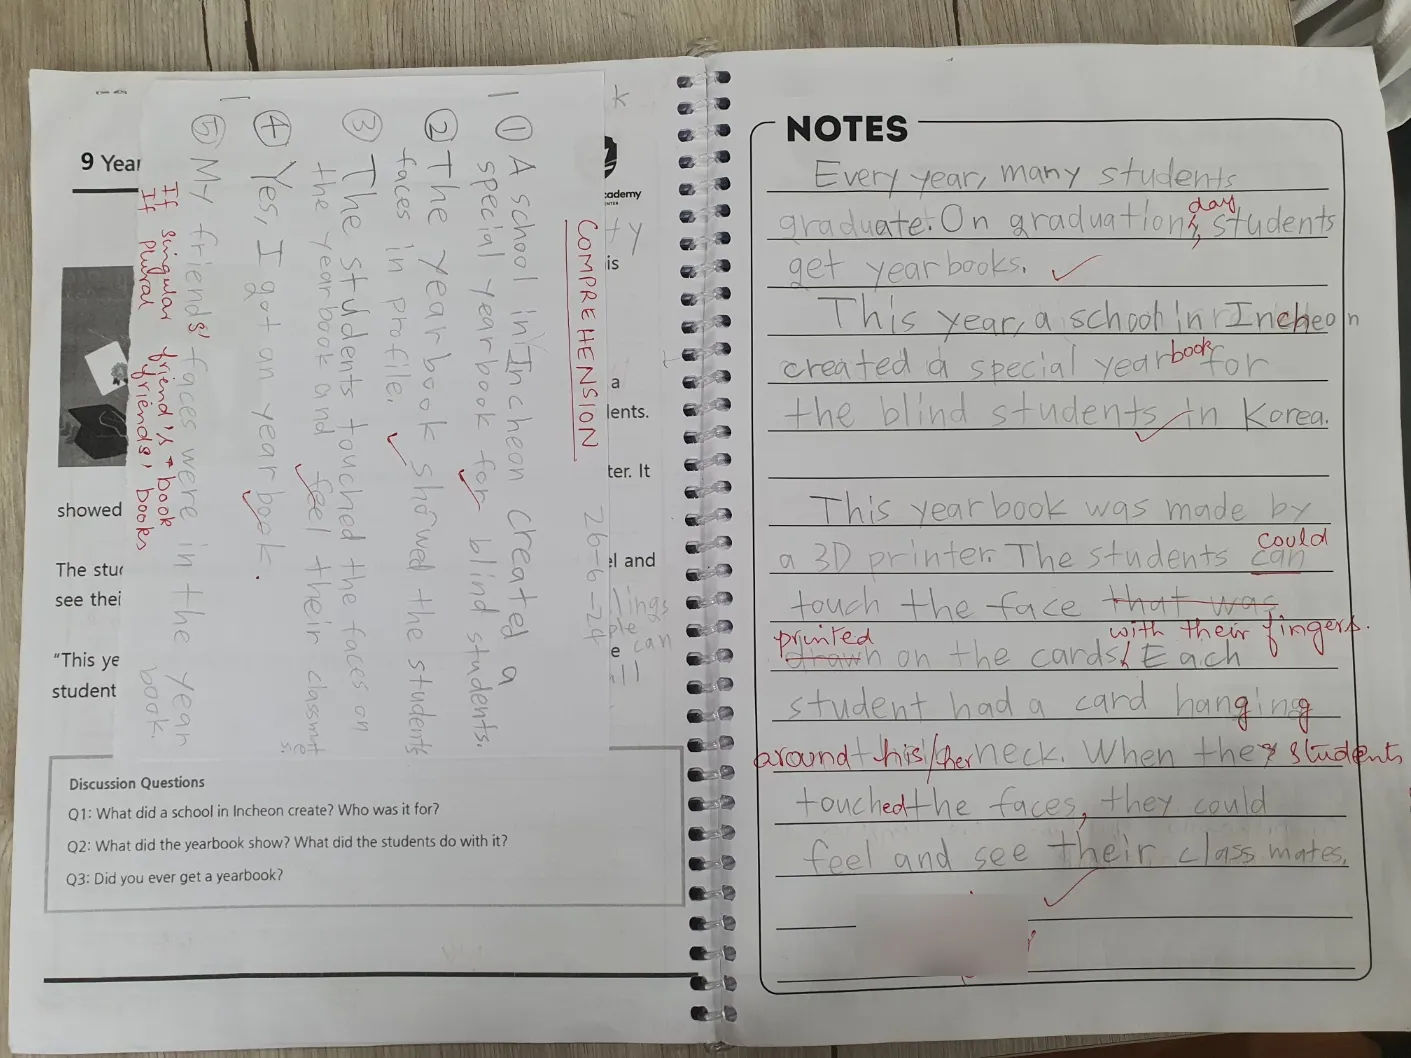 9 Year
cademy
is
a
lents.
ter. It
showed
The stu
el and
see thei
e can
"This ye
student
COMPREHENSION 26-6-24
① A school in Incheon created a
special yearbook for blind students.
② The yearbook showed the students
faces in profile.
③ The students touched the faces on
the yearbook and feel their classmat
se
④ Yes, I got an yearbook.
⑤ My friends' faces were in the year
book.
If singular friend's book
If plural friends' books
Discussion Questions
Q1: What did a school in Incheon create? Who was it for?
Q2: What did the yearbook show? What did the students do with it?
Q3: Did you ever get a yearbook?
NOTES
Every year, many students
day
graduate. On graduation, students
get yearbooks.
This year, a school in Incheon
book
created a special year for
the blind students in Korea.
This yearbook was made by
could
a 3D printer. The students can
touch the face that was
printed with their fingers.
drawn on the cards. Each
student had a card hanging
around his/her neck. When the students
touched the faces, they could
feel and see their classmates.